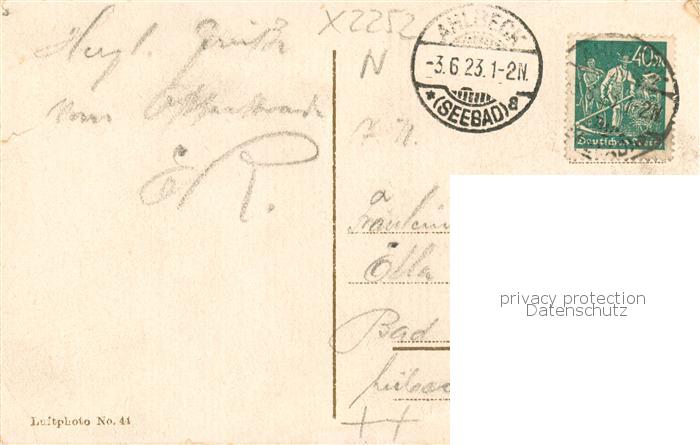 X2252
N
Herzl. Grüße
vom Ostseestrande
E R.
AHLBECK
-3.6.23.1-2N.
*(SEEBAD)a
40
Deutsches Reich
Fräulein
Ella
Bad
privacy protection
Datenschutz
Luftphoto No. 44